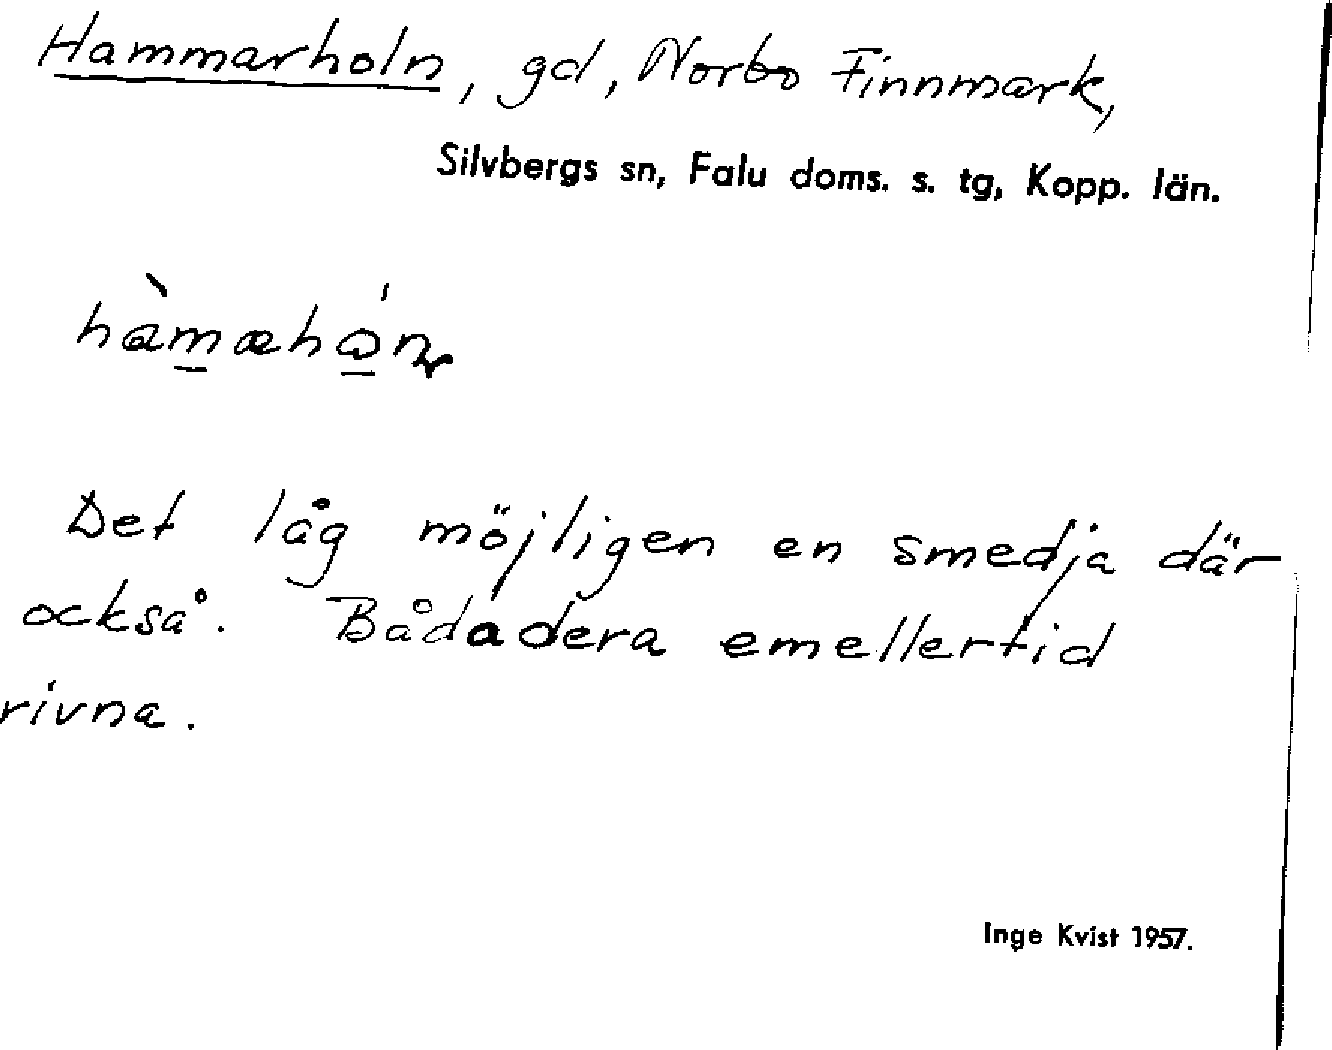 Hammarholn, gd, Norbo Finnmark,
Silvbergs sn, Falu doms. s. tg, Kopp. län.
Det låg möjligen en smedja där
också. Bådadera emellertid
rivna.
Inge Kvist 1957.